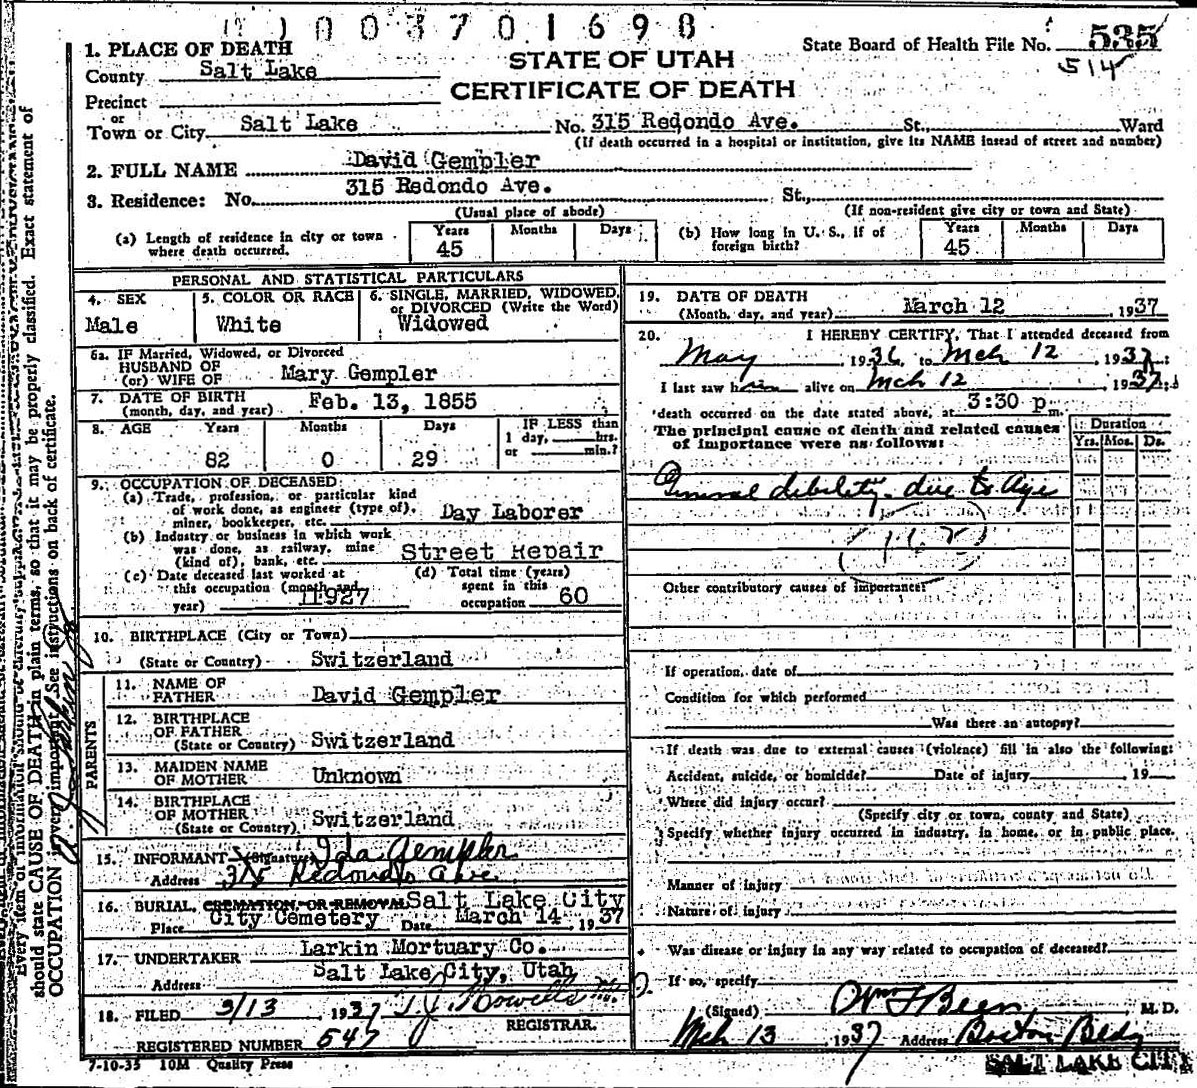 0 0 3 7 0 1 6 9 8
State Board of Health File No. 535
514
STATE OF UTAH
CERTIFICATE OF DEATH
1. PLACE OF DEATH
County Salt Lake
Precinct
or
Town or City Salt Lake No. 315 Redondo Ave. St., Ward
(If death occurred in a hospital or institution, give its NAME insead of street and number)
2. FULL NAME David Gempler
3. Residence: No. 315 Redondo Ave. St.,
(Usual place of abode) (If non-resident give city or town and State)
(a) Length of residence in city or town where death occurred. Years 45 Months Days
(b) How long in U. S., if of foreign birth? Years 45 Months Days
PERSONAL AND STATISTICAL PARTICULARS
4. SEX
Male
5. COLOR OR RACE
White
6. SINGLE, MARRIED, WIDOWED, or DIVORCED (Write the Word)
Widowed
6a. IF Married, Widowed, or Divorced
HUSBAND OF
(or) WIFE OF Mary Gempler
7. DATE OF BIRTH
(month, day, and year) Feb. 13, 1855
8. AGE Years Months Days IF LESS than
1 day, hrs.
or min.?
82 0 29
9. OCCUPATION OF DECEASED
(a) Trade, profession, or particular kind
of work done, as engineer (type of),
miner, bookkeeper, etc. Day Laborer
(b) Industry or business in which work
was done, as railway, mine
(kind of), bank, etc. Street Repair
(c) Date deceased last worked at
this occupation (month and
year) 1927
(d) Total time (years)
spent in this
occupation 60
10. BIRTHPLACE (City or Town)
(State or Country) Switzerland
PARENTS
11. NAME OF
FATHER David Gempler
12. BIRTHPLACE
OF FATHER
(State or Country) Switzerland
13. MAIDEN NAME
OF MOTHER Unknown
14. BIRTHPLACE
OF MOTHER
(State or Country) Switzerland
15. INFORMANT (Signature) Ida Gempler
Address 315 Redondo Ave
16. BURIAL, CREMATION, OR REMOVAL Salt Lake City
Place City Cemetery Date March 14, 1937
17. UNDERTAKER Larkin Mortuary Co.
Address Salt Lake City, Utah
18. FILED 3/13 1937 T. J. Howells M.D.
REGISTRAR.
REGISTERED NUMBER 547
7-10-35 10M Quality Press
19. DATE OF DEATH
(Month, day, and year) March 12, 1937
20. I HEREBY CERTIFY, That I attended deceased from
May 1936, to Mch 12, 1937
I last saw him alive on Mch 12 1937
death occurred on the date stated above, at 3:30 p m.
The principal cause of death and related causes
of importance were as follows:
Duration
Yrs. Mos. Ds.
General debility due to Age
162
Other contributory causes of importance:
If operation, date of
Condition for which performed
Was there an autopsy?
If death was due to external causes (violence) fill in also the following:
Accident, suicide, or homicide? Date of injury, 19
Where did injury occur?
(Specify city or town, county and State)
Specify whether injury occurred in industry, in home, or in public place.
Manner of injury
Nature of injury
Was disease or injury in any way related to occupation of deceased?
If so, specify
(Signed) Wm F Beer, M. D.
Mch 13 1937 Address Boston Bldg
SALT LAKE CITY
should state CAUSE OF DEATH in plain terms, so that it may be properly classified. Exact statement of
OCCUPATION is very important. See instructions on back of certificate.